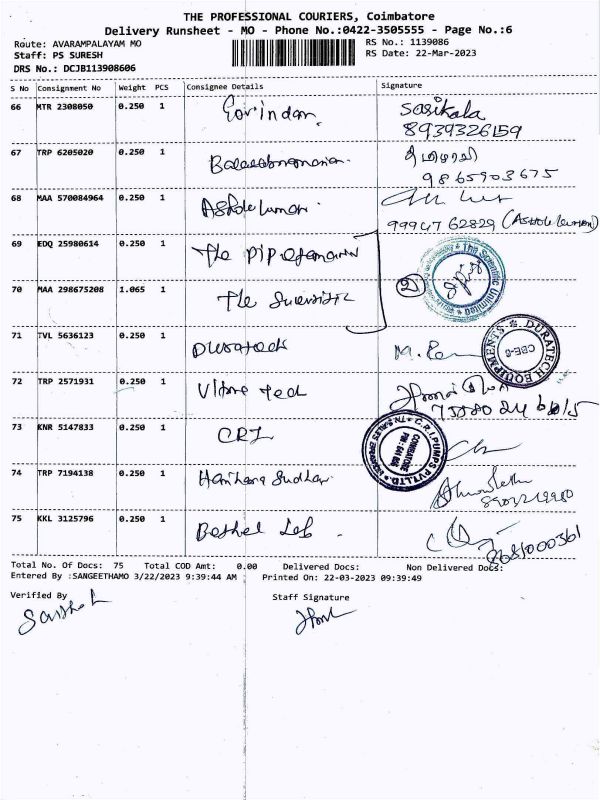 THE PROFESSIONAL COURIERS, Coimbatore
Delivery Runsheet - MO - Phone No.:0422-3505555 - Page No.:6
Route: AVARAMPALAYAM MO
Staff: PS SURESH
DRS No.: DCJB113908606
RS No.: 1139086
RS Date: 22-Mar-2023
S No Consignment No Weight PCS Consignee Details Signature
66 MTR 2308050 0.250 1 Govindan Sasikala
8939326159
67 TRP 6205020 0.250 1
9865903675
68 MAA 570084964 0.250 1 Ashok kumar
99947 62829 (Ashok kumar)
69 EDQ 25980614 0.250 1 The
The Scientific Unlimited
70 MAA 298675208 1.065 1 The
71 TVL 5636123 0.250 1 Duratech
DURATECH EQUIPMENTS
CBE-6
72 TRP 2571931 0.250 1
73 KNR 5147833 0.250 1 CRI
C.R.I. PUMPS PVT LTD.
COIMBATORE
74 TRP 7194138 0.250 1 Harihara Sudhan
8903219980
75 KKL 3125796 0.250 1 Bethel Lab
Total No. Of Docs: 75 Total COD Amt: 0.00 Delivered Docs: Non Delivered Docs:
Entered By :SANGEETHAMO 3/22/2023 9:39:44 AM Printed On: 22-03-2023 09:39:49
Verified By Staff Signature